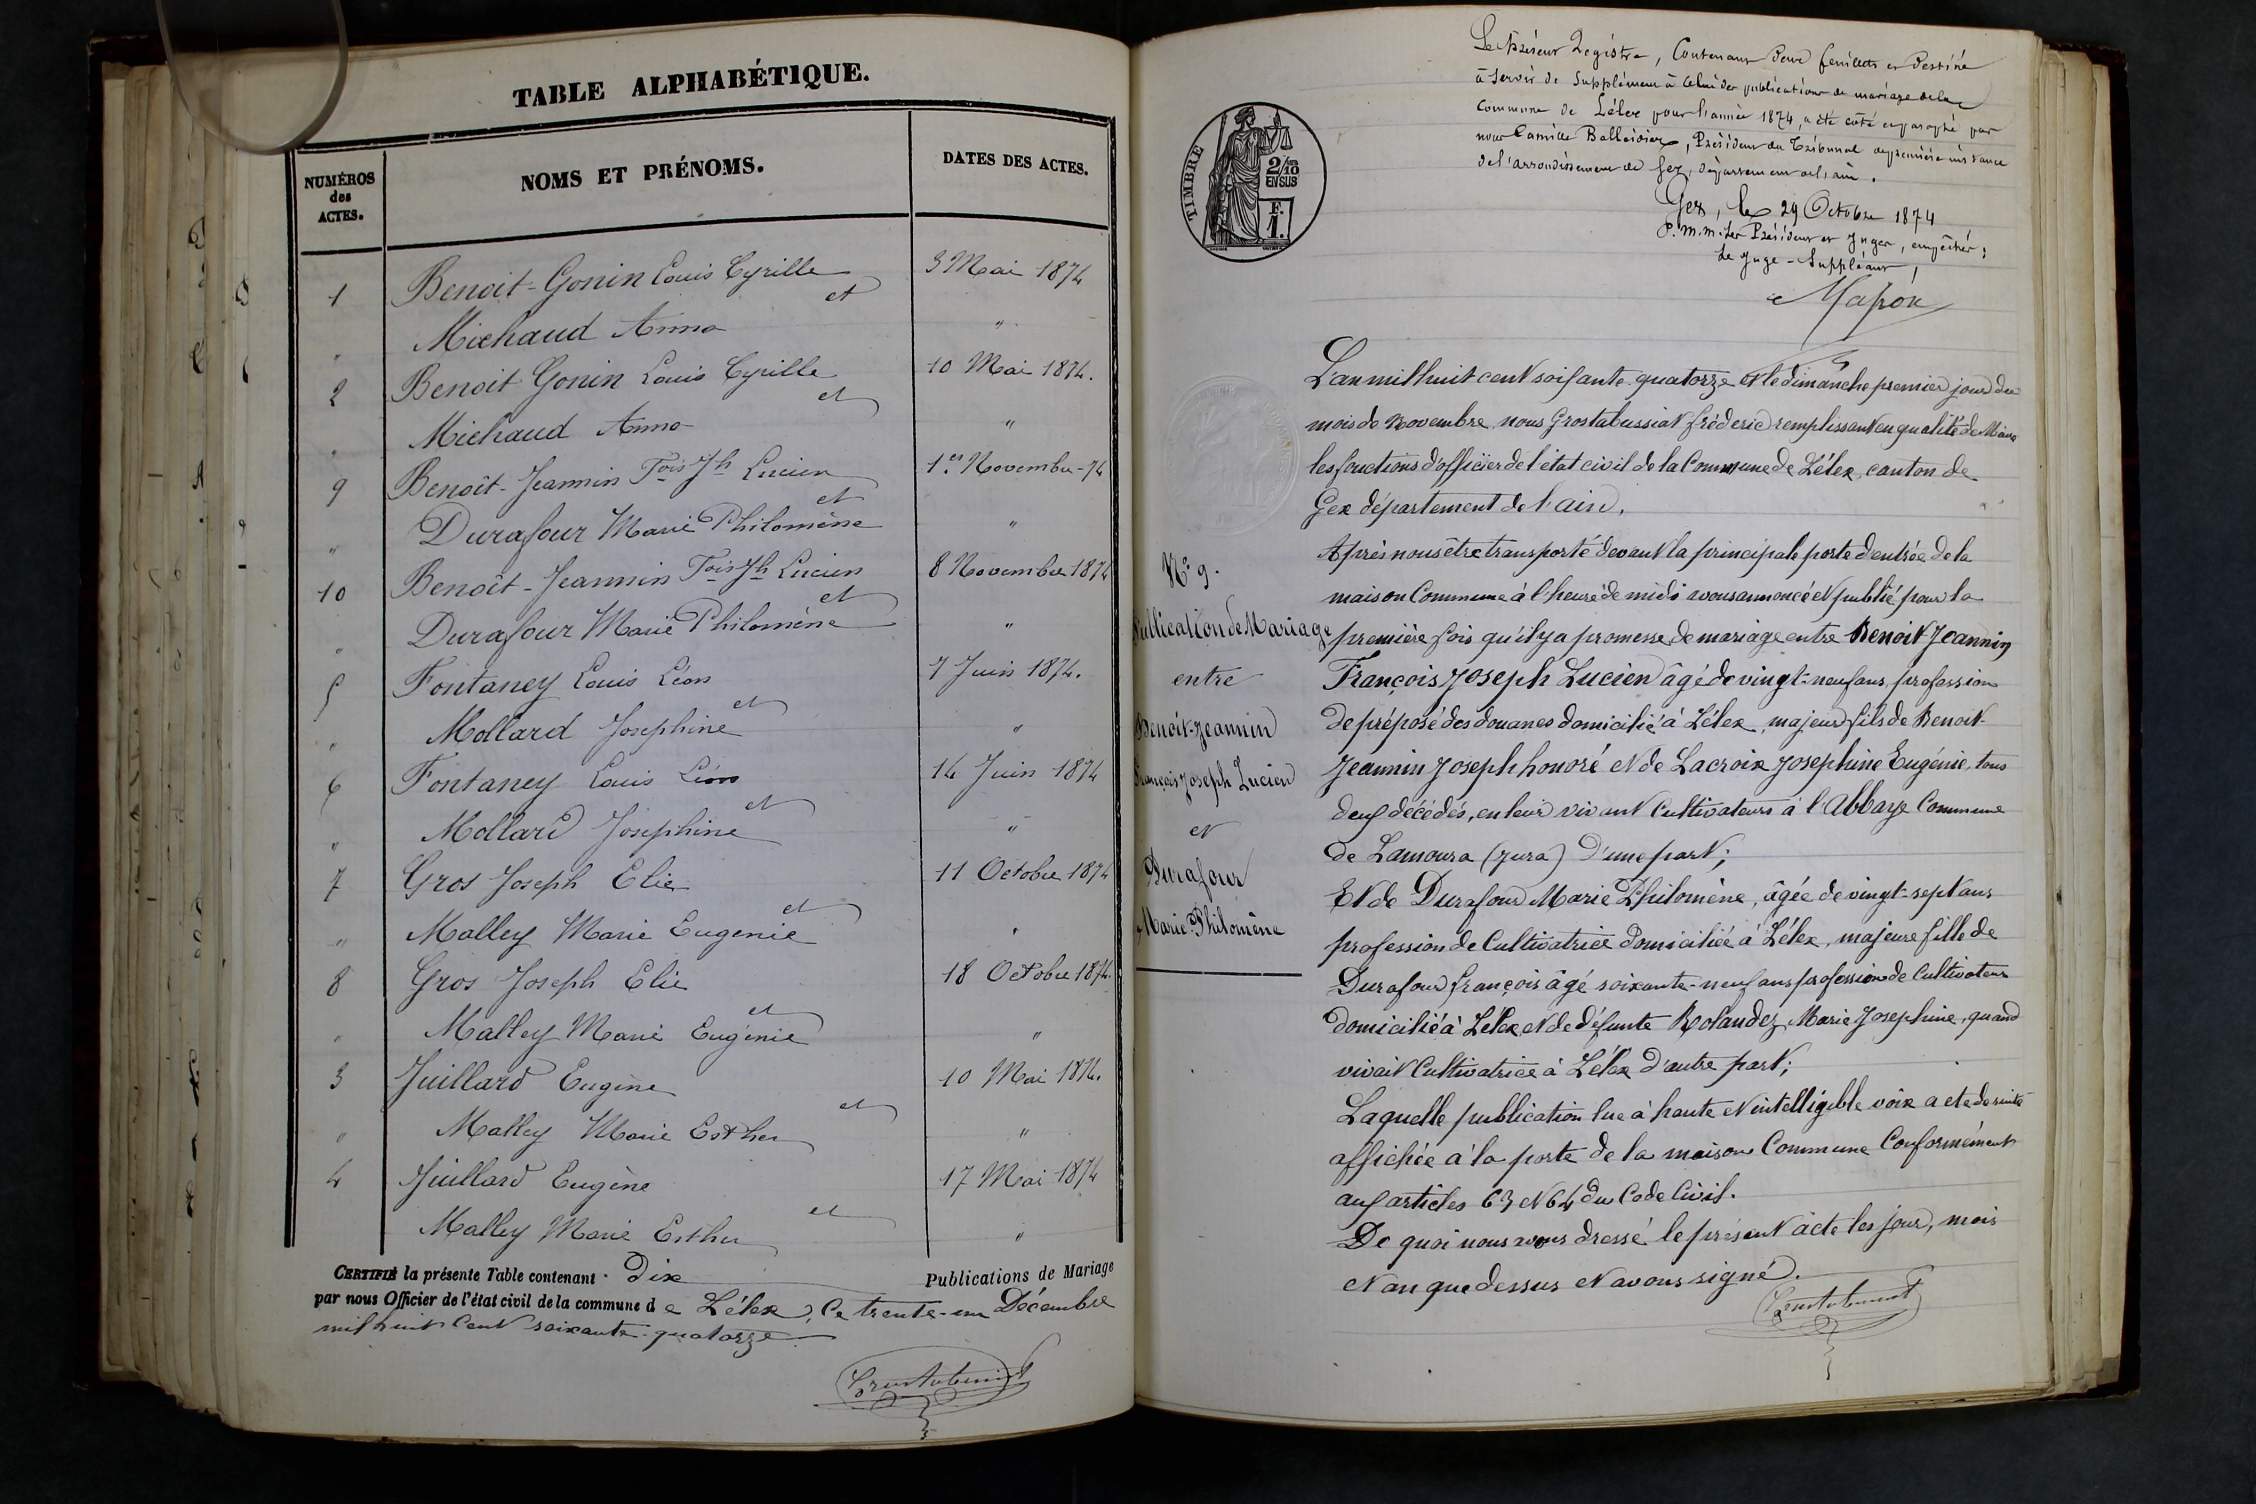 TABLE ALPHABÉTIQUE.
NUMÉROS des ACTES.
NOMS ET PRÉNOMS.
DATES DES ACTES.
1 Benoit-Gonin Louis Cyrille et 3 Mai 1874
" Michaud Anna "
2 Benoit Gonin Louis Cyrille et 10 Mai 1874.
" Michaud Anna "
9 Benoît-Jeannin Fois Jh Lucien et 1er Novembre-74
" Durafour Marie Philomène "
10 Benoît-Jeannin Fois Jh Lucien et 8 Novembre 1874
" Durafour Marie Philomène "
5 Fontaney Louis Léon et 7 Juin 1874.
" Mollard Josephine "
6 Fontaney Louis Léon et 14 Juin 1874
" Mollard Josephine "
7 Gros Joseph Elie et 11 Octobre 1874
" Malley Marie Eugenie "
8 Gros Joseph Elie et 18 Octobre 1874.
" Malley Marie Eugénie "
3 Juillard Eugène et 10 Mai 1874.
" Malley Marie Esther "
4 Juillard Eugène et 17 Mai 1874
" Malley Marie Esther "
CERTIFIÉ la présente Table contenant Dix Publications de Mariage
par nous Officier de l'état civil de la commune de Lélex, Ce trente-un Décembre
mil huit Cent soixante-quatorze
Grostabussiat
Le Présent Registre, Contenant deux feuillets et destiné
à servir de Supplément à Celui des publications de mariage de la
Commune de Lélex pour l'année 1874, a été coté et paraphé par
nous Camille Balleidier, Président du Tribunal de première instance
de l'arrondissement de Gex, département de l'ain.
Gex, le 29 Octobre 1874
P. M.M. les Président et Juges, empêchés;
Le Juge-Suppléant,
TIMBRE
2/10 EN SUS
F. 1.
L'an mil huit cent soixante-quatorze et le dimanche premier jour du
mois de Novembre, nous Grostabussiat fréderic remplissant en qualité de Maire
les fonctions d'officier de l'état civil de la Commune de Lélex, canton de
Gex département de l'ain.
Après nous être transporté devant la principale porte d'entrée de la
maison Commune à l'heure de midi avons annoncé et publié pour la
première fois qu'il y a promesse de mariage entre Benoit-Jeannin
François Joseph Lucien âgé de vingt-neuf ans, profession
de préposé des douanes domicilié à Lélex, majeur fils de Benoit-
Jeannin Joseph honoré et de Lacroix Josephine Eugénie, tous
deux décédés, en leur vivant Cultivateurs à l'Abbaye Commune
de Lamoura (Jura) D'une part;
Et de Durafour Marie Philomène, âgée de vingt-sept ans
profession de Cultivatrice domiciliée à Lélex, majeure fille de
Durafour françois âgé soixante-neuf ans profession de Cultivateur
domicilié à Lélex et de défunte Rolandez Marie Josephine, quand
vivait Cultivatrice à Lélex d'autre part;
Laquelle publication lue à haute et intelligible voix a ete de suite
affichée à la porte de la maison Commune Conformément
aux articles 63 et 64 du Code Civil.
De quoi nous avons dressé le présent acte les jour, mois
et an que dessus et avons signé.
Grostabussiat
N° 9.
Publication de Mariage
entre
Benoit-Jeannin
François Joseph Lucien
et
Durafour
Marie Philomène